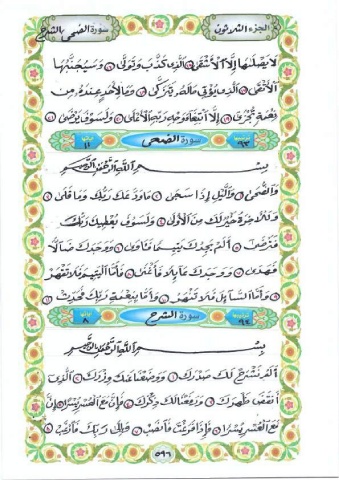 الجزء الثلاثون سورة الضحى والشرح
لَا يَصْلَىٰهَا إِلَّا ٱلْأَشْقَى ١٥ ٱلَّذِى كَذَّبَ وَتَوَلَّىٰ ١٦ وَسَيُجَنَّبُهَا
ٱلْأَتْقَى ١٧ ٱلَّذِى يُؤْتِى مَالَهُۥ يَتَزَكَّىٰ ١٨ وَمَا لِأَحَدٍ عِندَهُۥ مِن
نِّعْمَةٍ تُجْزَىٰٓ ١٩ إِلَّا ٱبْتِغَآءَ وَجْهِ رَبِّهِ ٱلْأَعْلَىٰ ٢٠ وَلَسَوْفَ يَرْضَىٰ ٢١
ترتيبها ٩٣ سورة الضحى آياتها ١١
بِسْمِ ٱللَّهِ ٱلرَّحْمَٰنِ ٱلرَّحِيمِ
وَٱلضُّحَىٰ ١ وَٱلَّيْلِ إِذَا سَجَىٰ ٢ مَا وَدَّعَكَ رَبُّكَ وَمَا قَلَىٰ ٣
وَلَلْـَٔاخِرَةُ خَيْرٌ لَّكَ مِنَ ٱلْأُولَىٰ ٤ وَلَسَوْفَ يُعْطِيكَ رَبُّكَ
فَتَرْضَىٰٓ ٥ أَلَمْ يَجِدْكَ يَتِيمًا فَـَٔاوَىٰ ٦ وَوَجَدَكَ ضَآلًّا
فَهَدَىٰ ٧ وَوَجَدَكَ عَآئِلًا فَأَغْنَىٰ ٨ فَأَمَّا ٱلْيَتِيمَ فَلَا تَقْهَرْ ٩
وَأَمَّا ٱلسَّآئِلَ فَلَا تَنْهَرْ ١٠ وَأَمَّا بِنِعْمَةِ رَبِّكَ فَحَدِّثْ ١١
ترتيبها ٩٤ سورة الشرح آياتها ٨
بِسْمِ ٱللَّهِ ٱلرَّحْمَٰنِ ٱلرَّحِيمِ
أَلَمْ نَشْرَحْ لَكَ صَدْرَكَ ١ وَوَضَعْنَا عَنكَ وِزْرَكَ ٢ ٱلَّذِىٓ
أَنقَضَ ظَهْرَكَ ٣ وَرَفَعْنَا لَكَ ذِكْرَكَ ٤ فَإِنَّ مَعَ ٱلْعُسْرِ يُسْرًا ٥ إِنَّ
مَعَ ٱلْعُسْرِ يُسْرًا ٦ فَإِذَا فَرَغْتَ فَٱنصَبْ ٧ وَإِلَىٰ رَبِّكَ فَٱرْغَب ٨
٥٩٦